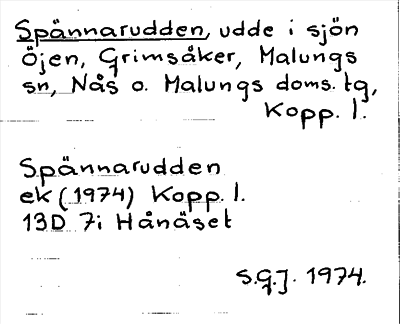 Spännarudden, udde i sjön
Öjen, Grimsåker, Malungs
sn, Nås o. Malungs doms. tg,
Kopp. l.
Spännarudden
ek (1974) Kopp. l.
13D 7i Hånäset
S.G.J. 1974.